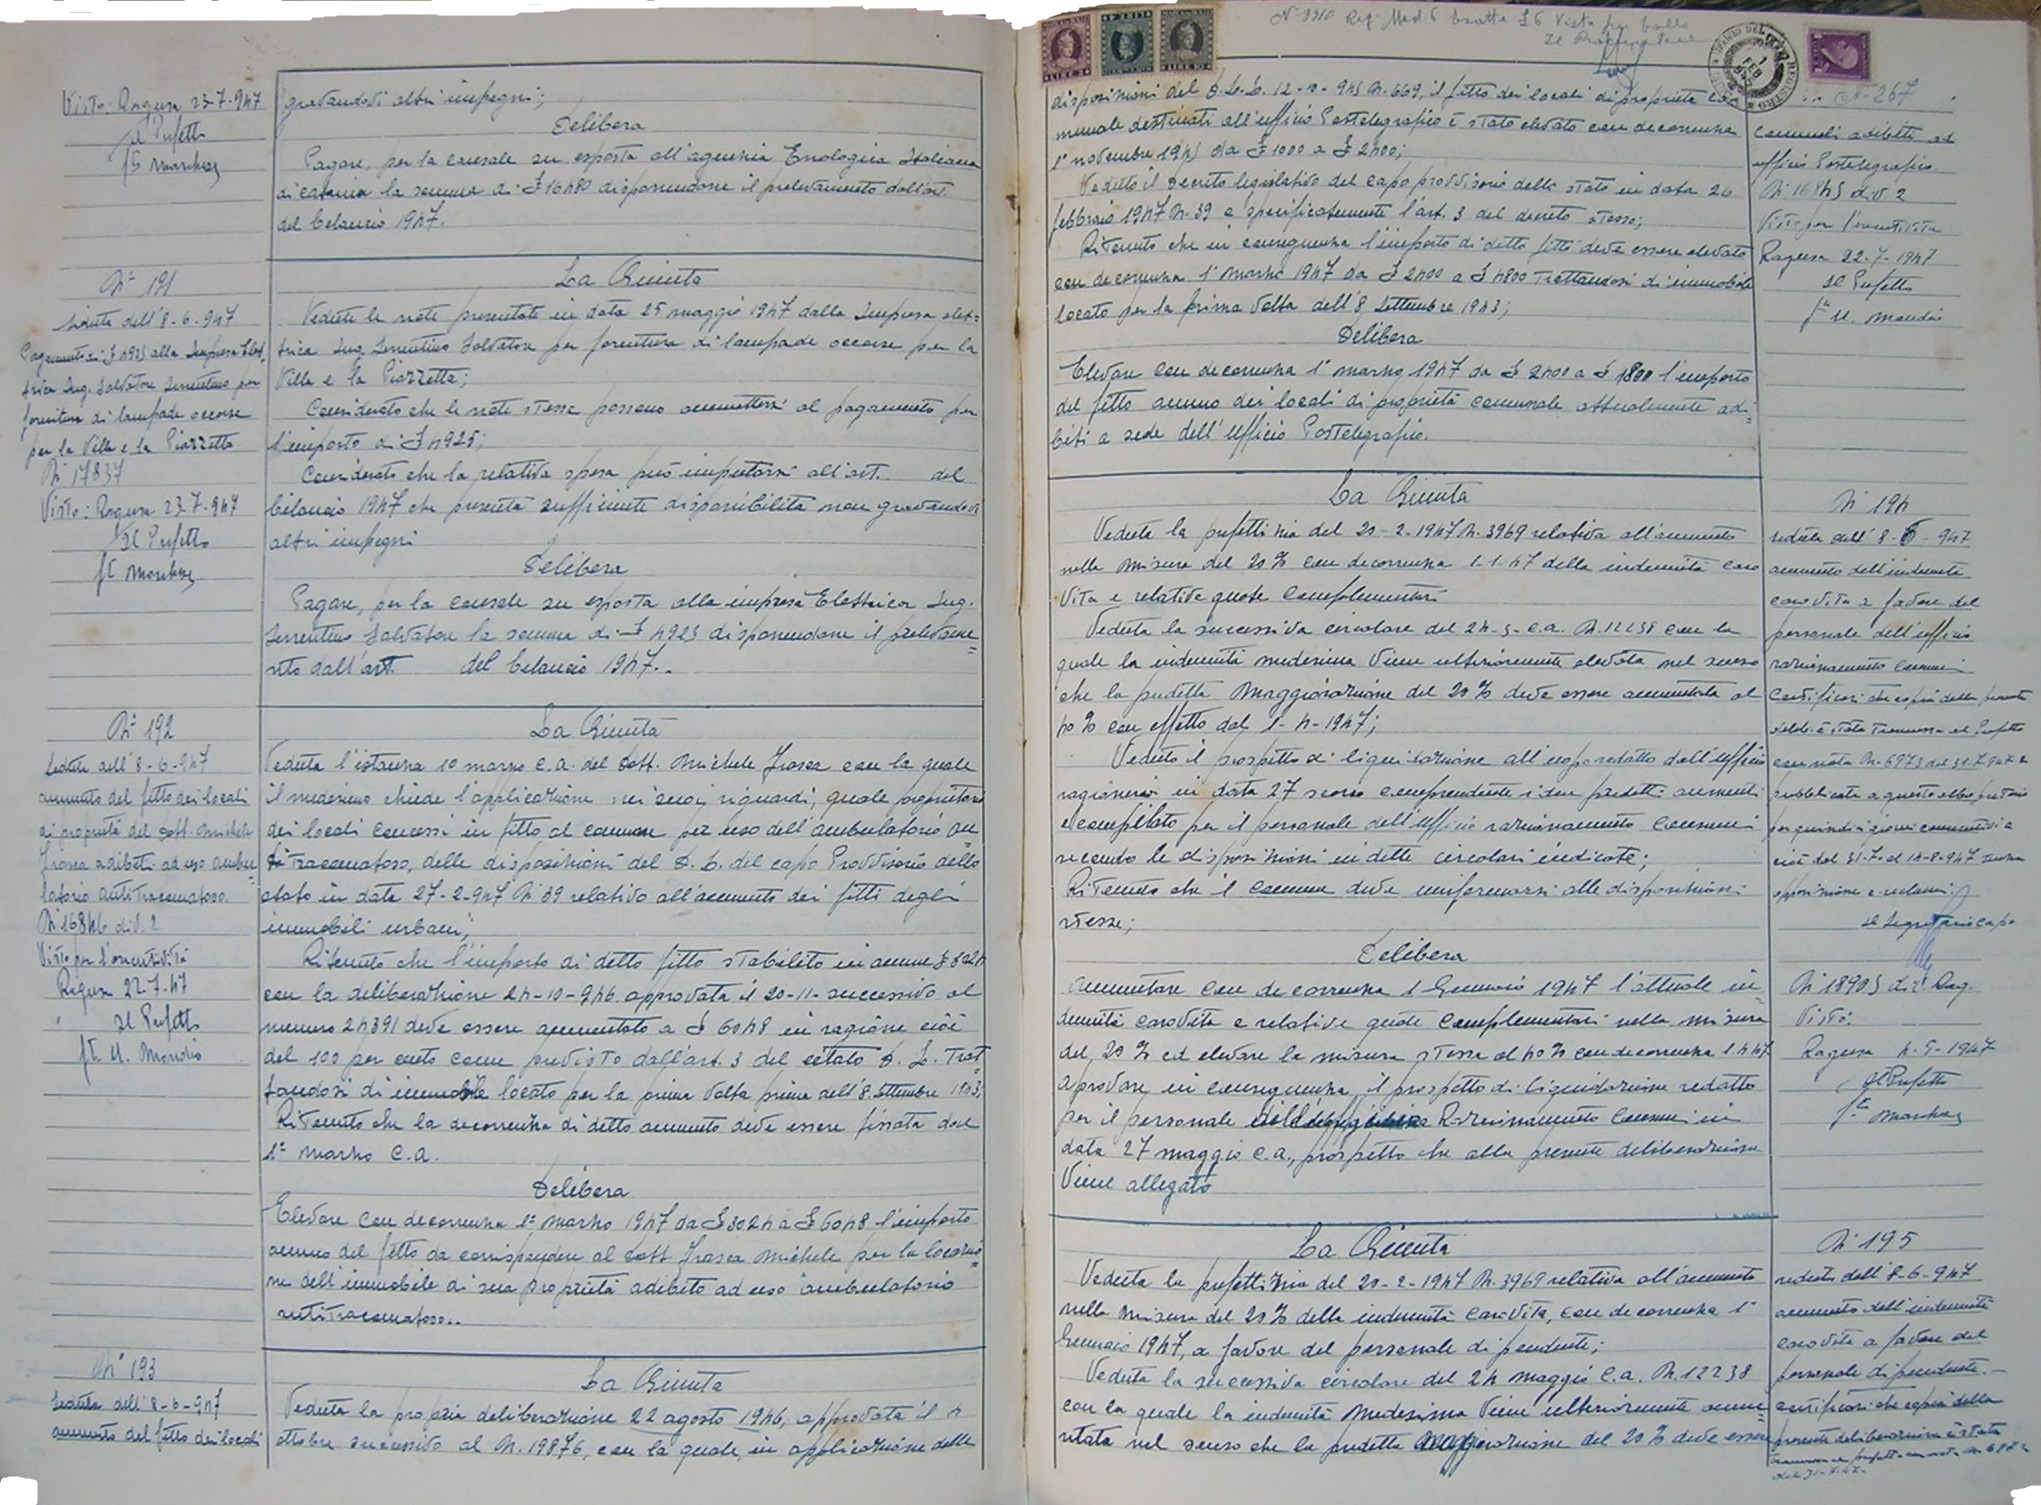 Visto: Ragusa 23-7-947
Il Prefetto
gravandovi altri impegni;
Delibera
Pagare, per la causale su esposta all'agenzia Enologica Italiana
di Catania la somma di £ 16480 disponendone il prelevamento dall'art.
del bilancio 1947.
N° 191
seduta dell'8-6-947
Pagamento di £ 4925 alla Impresa Elet-
trica Ing. Salvatore Sorrentino per
fornitura di lampade occorse
per la Villa e la Piazzetta
N° 17837
Visto: Ragusa 23-7-947
Il Prefetto
La Giunta
Vedute le note presentate in data 25 maggio 1947 dalla Impresa elet=
trica Ing. Sorrentino Salvatore per fornitura di lampade occorse per la
Villa e la Piazzetta;
Considerato che le note stesse possono ammettersi al pagamento per
l'importo di £ 4925;
Considerato che la relativa spesa può imputarsi all'art. del
bilancio 1947 che presenta sufficiente disponibilità non gravandovi
altri impegni
Delibera
Pagare, per la causale su esposta alla impresa Elettrica Ing.
Sorrentino Salvatore la somma di £ 4925 disponendone il prelevame=
nto dall'art. del bilancio 1947..
N° 192
Seduta dell'8-6-947
aumento del fitto dei locali
di proprietà del Dott. Michele
Frasca adibiti ad uso ambu=
latorio antitracomatoso.
N° 16846 div. 2
Visto per l'esecutività
Ragusa 22-7-47
Il Prefetto
La Giunta
Veduta l'istanza 10 marzo c.a. del Dott. Michele Frasca con la quale
il medesimo chiede l'applicazione nei suoi riguardi, quale proprietario
dei locali concessi in fitto al comune per uso dell'ambulatorio an
ti tracomatoso, delle disposizioni del D. L. del capo Provvisorio dello
stato in data 27-2-947 N° 39 relativo all'aumento dei fitti degli
immobili urbani;
Ritenuto che l'importo di detto fitto stabilito in annue £ 3024
con la deliberazione 24-10-946 approvata il 20-11- successivo al
numero 24391 deve essere aumentato a £ 6048 in ragione cioè
del 100 per cento come previsto dall'art. 3 del citato D. L. Trat
tandosi di immobile locato per la prima volta prima dell'8 settembre 1943;
Ritenuto che la decorrenza di detto aumento deve essere fissata dal
1° marzo c.a.
Delibera
Elevare con decorrenza 1° marzo 1947 da £ 3024 a £ 6048 l'importo
annuo del fitto da corrispondere al Dott. Frasca Michele per la locazio
ne dell'immobile di sua proprietà adibito ad uso ambulatorio
antitracomatoso..
N° 193
Seduta dell'8-6-947
aumento del fitto dei locali
La Giunta
Veduta la propria deliberazione 22 agosto 1946, approvata il 4
ottobre successivo al N. 19876, con la quale, in applicazione delle
LIRE
N° 3310 Reg. Mod. 6 Esatte £ 6 Visto per bollo
Il Procuratore
1 FEB
N° 267
disposizioni del D. L. L. 12-10-945 N. 669, il fitto dei locali di proprietà co
munale destinati all'ufficio Postelegrafico è stato elevato con decorrenza
1° novembre 1945 da £ 1000 a £ 2400;
Veduto il decreto legislativo del capo provvisorio dello stato in data 26
febbraio 1947 N. 39 e specificatamente l'art. 3 del decreto stesso;
Ritenuto che in conseguenza l'importo di detto fitto deve essere elevato
con decorrenza 1° marzo 1947 da £ 2400 a £ 4800 Trattandosi di immobile
locato per la prima volta dell'8 settembre 1943;
Delibera
Elevare con decorrenza 1° marzo 1947 da £ 2400 a £ 4800 l'importo
del fitto annuo dei locali di proprietà comunale attualmente adi=
biti a sede dell'ufficio Postelegrafico.
comunali adibiti ad
ufficio Postelegrafico.
N° 16845 div. 2
Visto per l'esecutività
Ragusa 22-7-1947
Il Prefetto
La Giunta
Veduta la prefettizia del 20-2-1947 N. 3969 relativa all'aumento
nella misura del 20% con decorrenza 1-1-47 della indennità caro
vita e relative quote complementari
Veduta la successiva circolare del 24-5-c.a. N. 12238 con la
quale la indennità medesima viene ulteriormente elevata nel senso
che la predetta maggiorazione del 20% deve essere aumentata al
40% con effetto dal 1-4-1947;
Veduto il prospetto di liquidazione all'uopo redatto dall'ufficio
ragioneria in data 27 scorso comprendente i due predetti aumenti
e compilato per il personale dell'ufficio razionamento consumi
secondo le disposizioni in dette circolari indicate;
Ritenuto che il comune deve uniformarsi alle disposizioni
stesse;
Delibera
Aumentare con decorrenza 1 Gennaio 1947 l'attuale in=
dennità carovita e relative quote complementari nella misura
del 20% ed elevare la misura stessa al 40% con decorrenza 1-4-47
approvare in conseguenza il prospetto di liquidazione redatto
per il personale Razionamento Consumi in
data 27 maggio c.a., prospetto che alla presente deliberazione
viene allegato
N° 194
seduta dell'8-6-947
aumento dell'indennità
caro vita a favore del
personale dell'ufficio
razionamento consumi
Certificasi che copia della presente
delib. è stata trasmessa al Prefetto
con nota N. 6973 del 31-7-947 e
pubblicata a questo albo pretorio
per quindici giorni consecutivi e
cioè dal 31-7- al 14-8-947 senza
opposizione e reclami
Il Segretario capo
N° 18905 div. Rag.
Visto:
Ragusa 4-9-1947
Il Prefetto
La Giunta
Veduta la prefettizia del 20-2-1947 N. 3969 relativa all'aumento
nella misura del 20% della indennità carovita, con decorrenza 1°
Gennaio 1947, a favore del personale dipendente;
Veduta la successiva circolare del 24 maggio c.a. N. 12238
con la quale la indennità medesima viene ulteriormente aume
ntata nel senso che la predetta maggiorazione del 20% deve essere
N° 195
seduta dell'8-6-947
aumento dell'indennità
caro vita a favore del
personale dipendente.-
certificasi che copia della
presente deliberazione è stata
trasmessa al prefetto con nota
del 31-7-47-